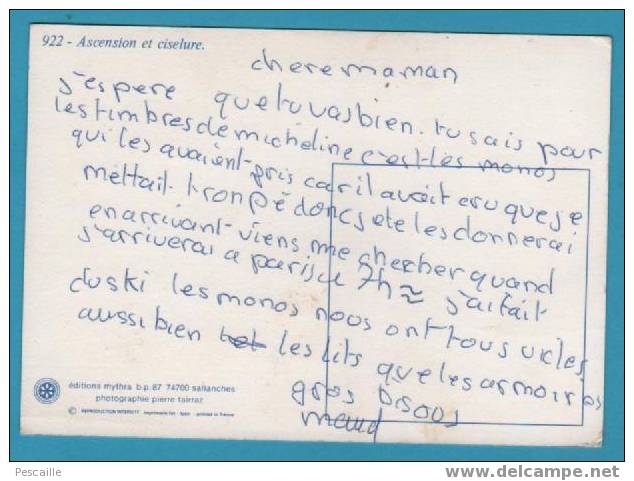 922 - Ascension et ciselure.
chere maman
j'espere que tu vas bien. tu sais pour
les timbres de micheline c'est les monos
qui les avaient pris car il avait cru que je
mettait tronpé donc je te les donnerai
en arrivant viens me checher quand
j'arriverai a paris 7h ≈ j'ai fait
du ski les monos nous ont tous vidés
aussi bien les lits que les armoires
gros bisous
maud
éditions mythra b.p. 87 74700 sallanches
photographie pierre tairraz
© REPRODUCTION INTERDITE
printed in France
Pescaille
www.delcampe.net